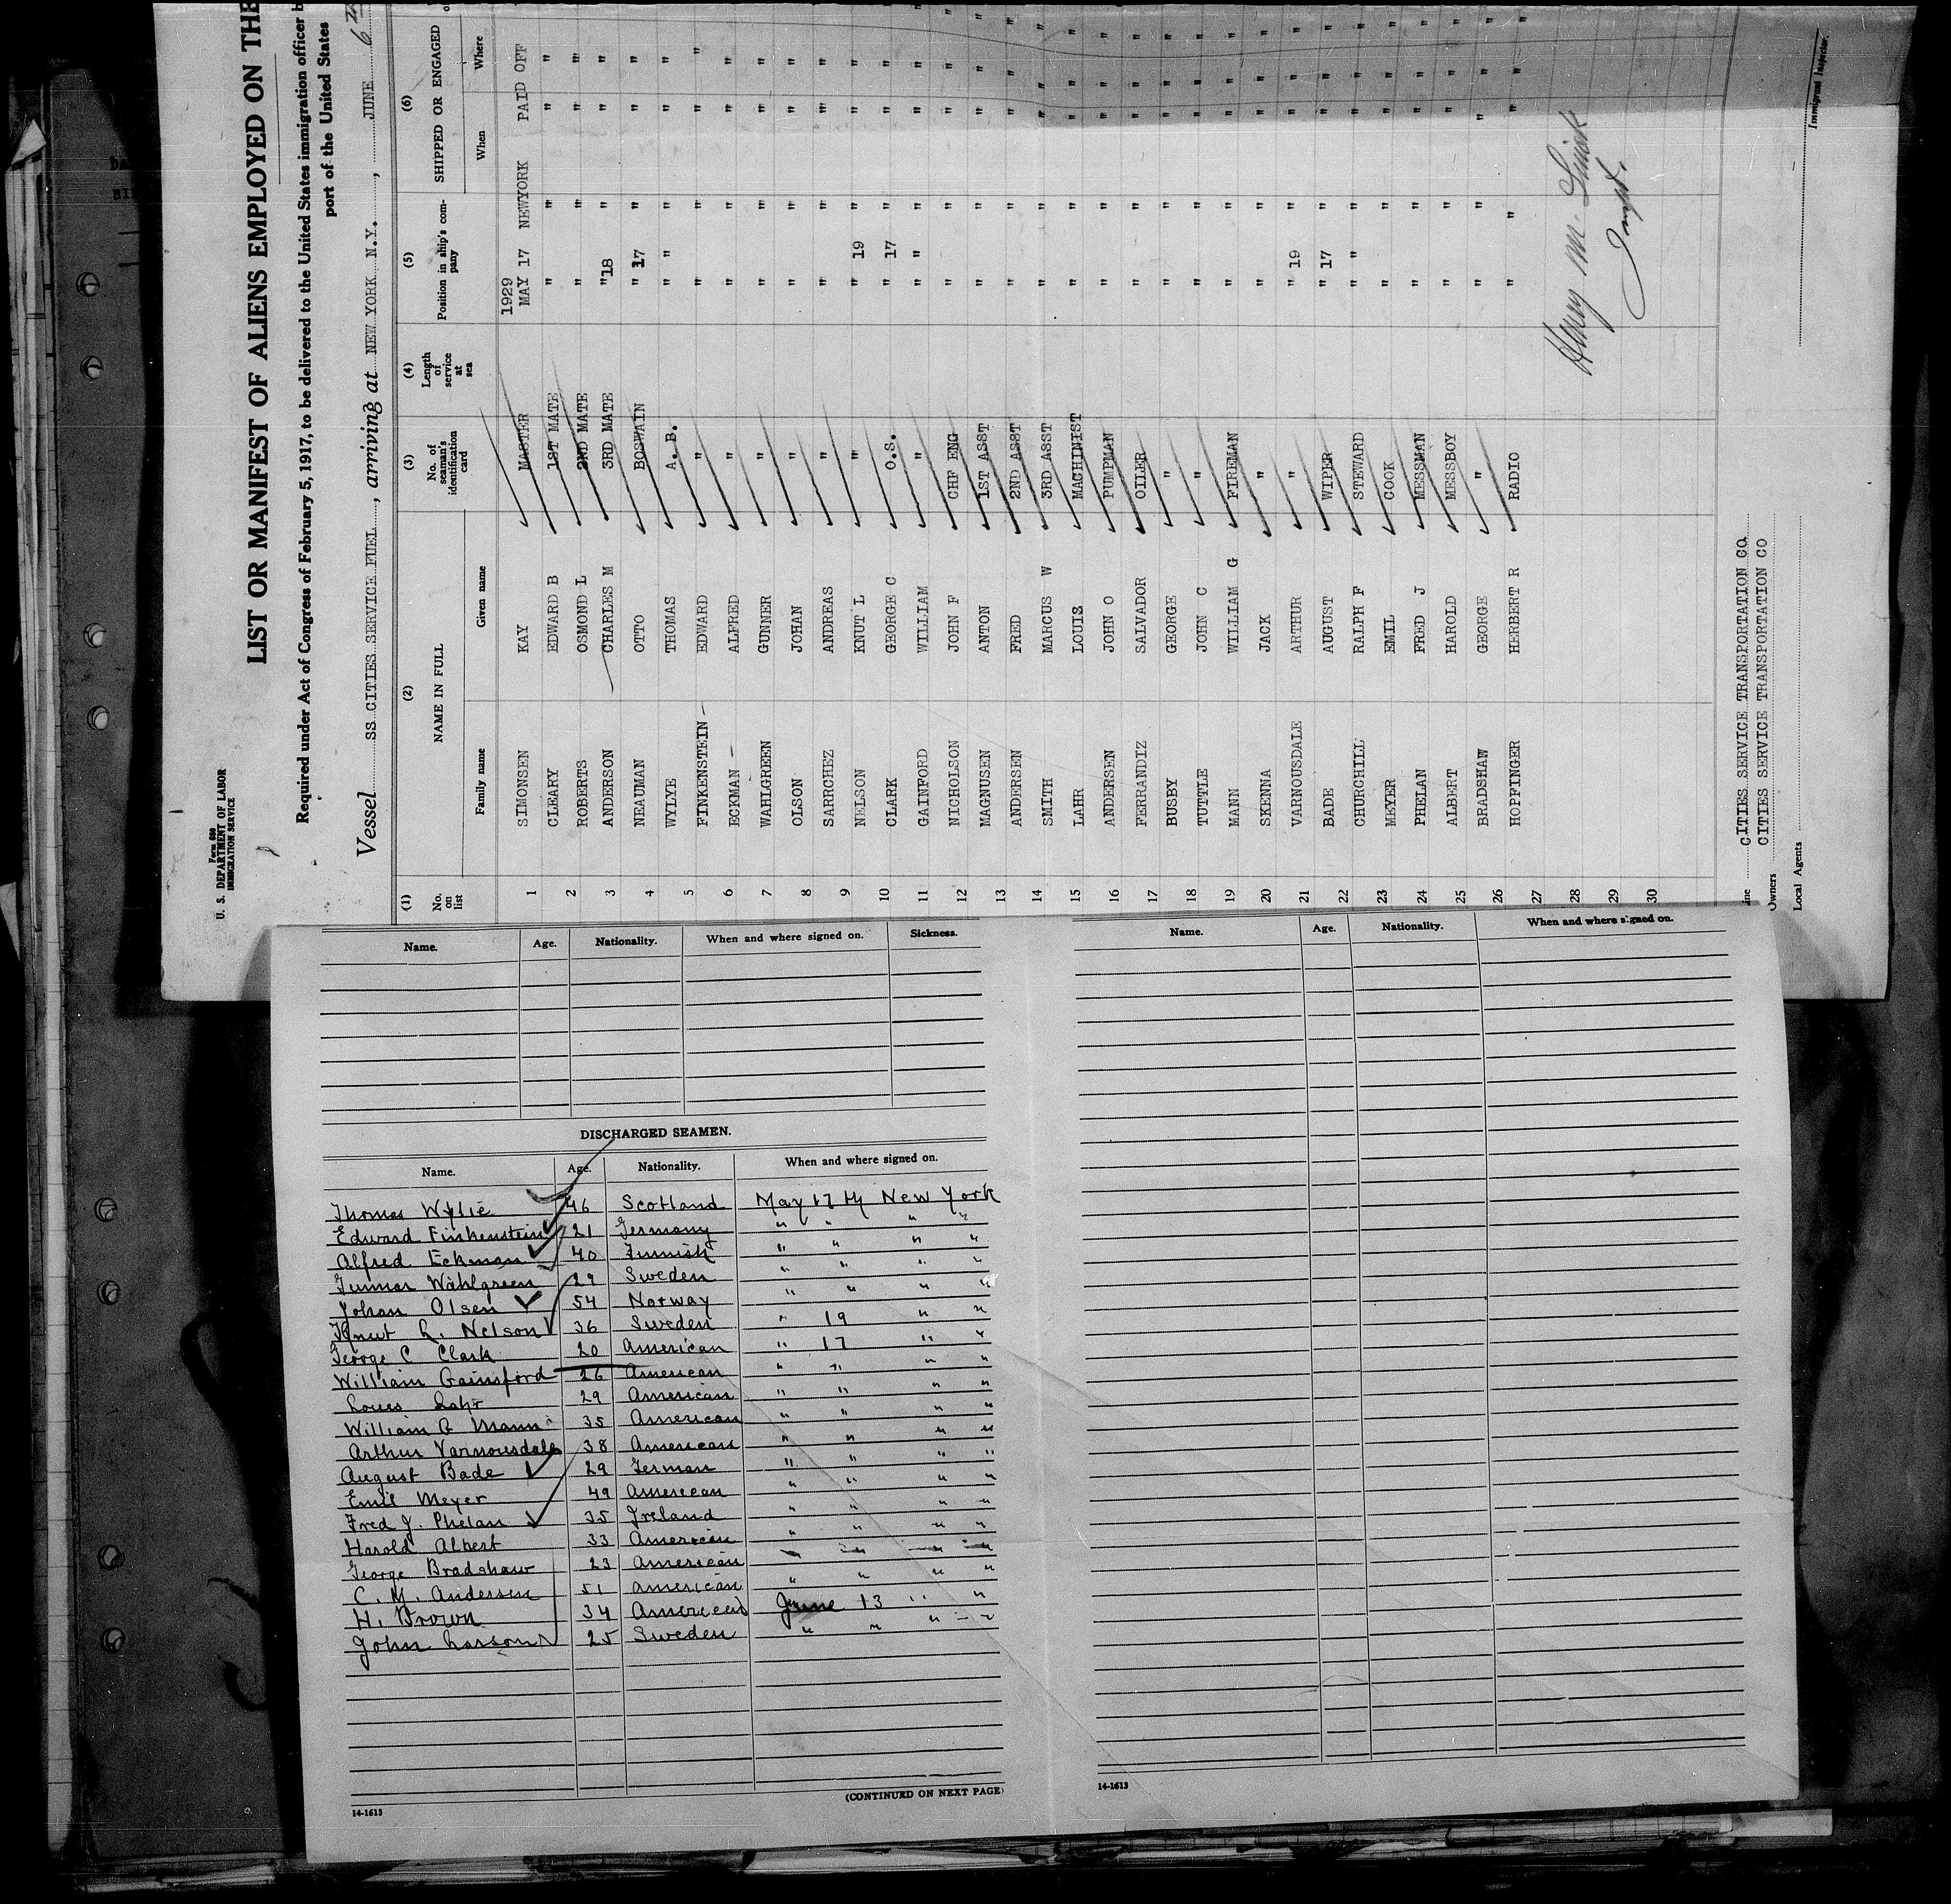 Form 680
U. S. DEPARTMENT OF LABOR
IMMIGRATION SERVICE
LIST OR MANIFEST OF ALIENS EMPLOYED ON THE
Required under Act of Congress of February 5, 1917, to be delivered to the United States immigration officer
port of the United States
Vessel SS CITIES SERVICE FUEL, arriving at NEW YORK N.Y., JUNE
(1) (2) (3) (4) (5) (6)
No. on list NAME IN FULL No. of seaman's identification card Length of service at sea Position in ship's company SHIPPED OR ENGAGED
Family name Given name When Where
1929
1 SIMONSEN KAY MASTER MAY 17 NEWYORK PAID OFF
2 CLEARY EDWARD B 1ST MATE " " " "
3 ROBERTS OSMOND L 2ND MATE " " " "
4 ANDERSON CHARLES M 3RD MATE "18 " " "
5 NEAUMAN OTTO BOSWAIN " 17 " " "
6 WYLYE THOMAS A.B. " " " " "
7 FINKENSTEIN EDWARD " " " " "
8 ECKMAN ALFRED " " " " "
9 WAHLGREEN GUNNER " " " " "
10 OLSON JOHAN " " " " "
11 SARRCHEZ ANDREAS " " " " "
12 NELSON KNUT L " " 19 " " "
13 CLARK GEORGE C O.S. " 17 " " "
14 GAINFORD WILLIAM " " " " " "
15 NICHOLSON JOHN F CHF ENG " " " "
16 MAGNUSEN ANTON 1ST ASST " " " "
17 ANDERSEN FRED 2ND ASST " " " "
18 SMITH MARCUS W 3RD ASST " " " "
19 LAHR LOUIS MACHINIST " " " "
20 ANDERSEN JOHN O PUMPMAN " " " "
21 FERRANDIZ SALVADOR OILER " " " "
22 BUSBY GEORGE " " " " "
23 TUTTLE JOHN C " " " " "
24 MANN WILLIAM G FIREMAN " " " "
25 SKENNA JACK " " " " "
26 VARNOUSDALE ARTHUR " " 19 " " "
27 BADE AUGUST WIPER " 17 " " "
28 CHURCHILL RALPH F STEWARD " " " " "
29 MEYER EMIL COOK " " " "
30 PHELAN FRED J MESSMAN " " " "
ALBERT HAROLD MESSBOY " " " "
BRADSHAW GEORGE " " " " "
HOPFINGER HERBERT R RADIO " " " "
Henry M.
Inspt.
CITIES SERVICE TRANSPORTATION CO
Owners CITIES SERVICE TRANSPORTATION CO
Local Agents
Immigrant Inspector.
Name. Age. Nationality. When and where signed on. Sickness.
DISCHARGED SEAMEN.
Name. Age. Nationality. When and where signed on.
Thomas Wylie 46 Scotland May 17 th New York
Edward Finkenstein 21 Germany " " " "
Alfred Eckman 40 Finnish " " " "
Gunnar Wahlgreen 29 Sweden " " " "
Johan Olsen 54 Norway " " " "
Knut L. Nelson 36 Sweden " 19 " "
George C Clark 20 American " 17 " "
William Gainsford 26 American " " " "
Loues Lahr 29 American " " " "
William G Mann 35 American " " " "
Arthur Varnousdale 38 American " " " "
August Bade 29 German " " " "
Emil Meyer 49 American " " " "
Fred J. Phelan 35 Ireland " " " "
Harold Albert 33 American " " " "
George Bradshaw 23 American " " " "
C. M. Andersen 51 American " " " "
H. Brown 34 American June 13 " "
John Larson 25 Sweden " " " "
(CONTINUED ON NEXT PAGE)
14-1613
Name. Age. Nationality. When and where signed on.
14-1613